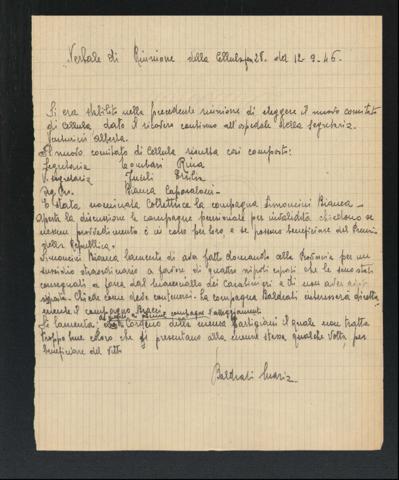 Verbale di Riunione della Cellula fem. 28. del 12-9-46.
Si era stabilito nella precedente riunione di eleggere il nuovo comitato
di cellula, dato il ricovero continuo all'ospedale della Segretaria
Alberta.
Il nuovo comitato di Cellula risulta così composto:
Segretaria Lombari Rina
V. segretaria Ersilia
Bianca Caporaloni -
È stata nominata Collettrice la compagna Simoncini Bianca -
Aperta la discussione le compagne pensionate per invalidità chiedono se
nessun provvedimento è in corso per loro, e se possono beneficiare del Premio
della Repubblica -
Simoncini Bianca lamenta di aver fatto domanda alla Provincia per un
sussidio straordinario a favore di quattro nipoti che le sono stati
consegnati a forza dal maresciallo dei Carabinieri e di non aver
Chiede come deve La compagna Baldrati interesserà
il compagno
da a alcune compagne
Si lamenta: della mensa Partigiani il quale non tratta
troppo bene coloro che si presentano alla mensa stessa qualche volta, per
beneficiare del vitto
Baldrati Maria